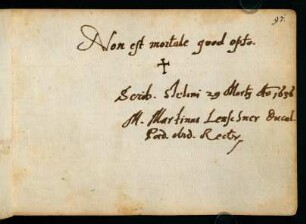 97.
Non est mortale quod opto.
Scrib. Ielini 29 Martij Ao 1636
M. Martinus Leuschner Diacol.
Pæd. ibid. Rector